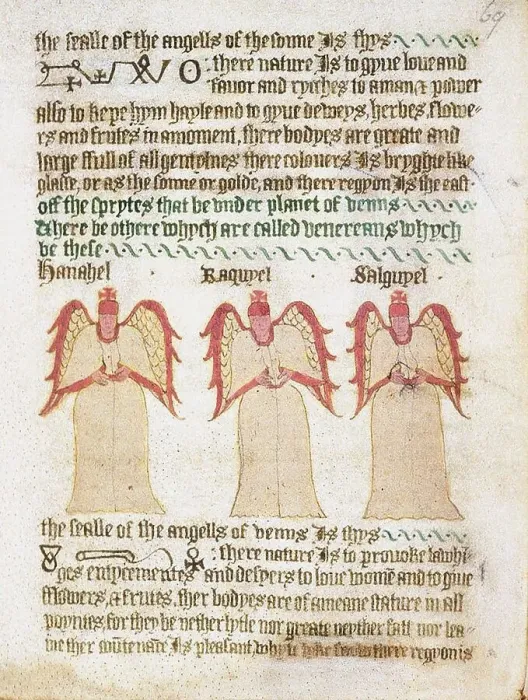 69
the sealle of the angells of the sonne Is thys
: there nature Is to gyue loue and
fauor and ryches to a man & power
also to kepe hym hayle and to gyue deweys, herbes, flowe-
rs and frutes in a moment, there bodyes are greate and
large ffull of all gentylnes there colouers Is bryghte like
glasse, or as the sonne or golde, and there regyon Is the east.
off the sprytes that be vnder planet of venus
& here be others whych are called venereans whych
be these
Hanahel . Raquyel . Salguyel .
the sealle of the angells of venus Is thys
: there nature Is to prouoke lawhi-
ges entycementes and desyers to loue women and to gyue
fflowers, & frutes, ther bodyes are of a meane stature in all
poyntes, for they be nether lytle nor greate neyther fatt nor lea-
ne ther countenance Is pleasant, whyte there regyon is